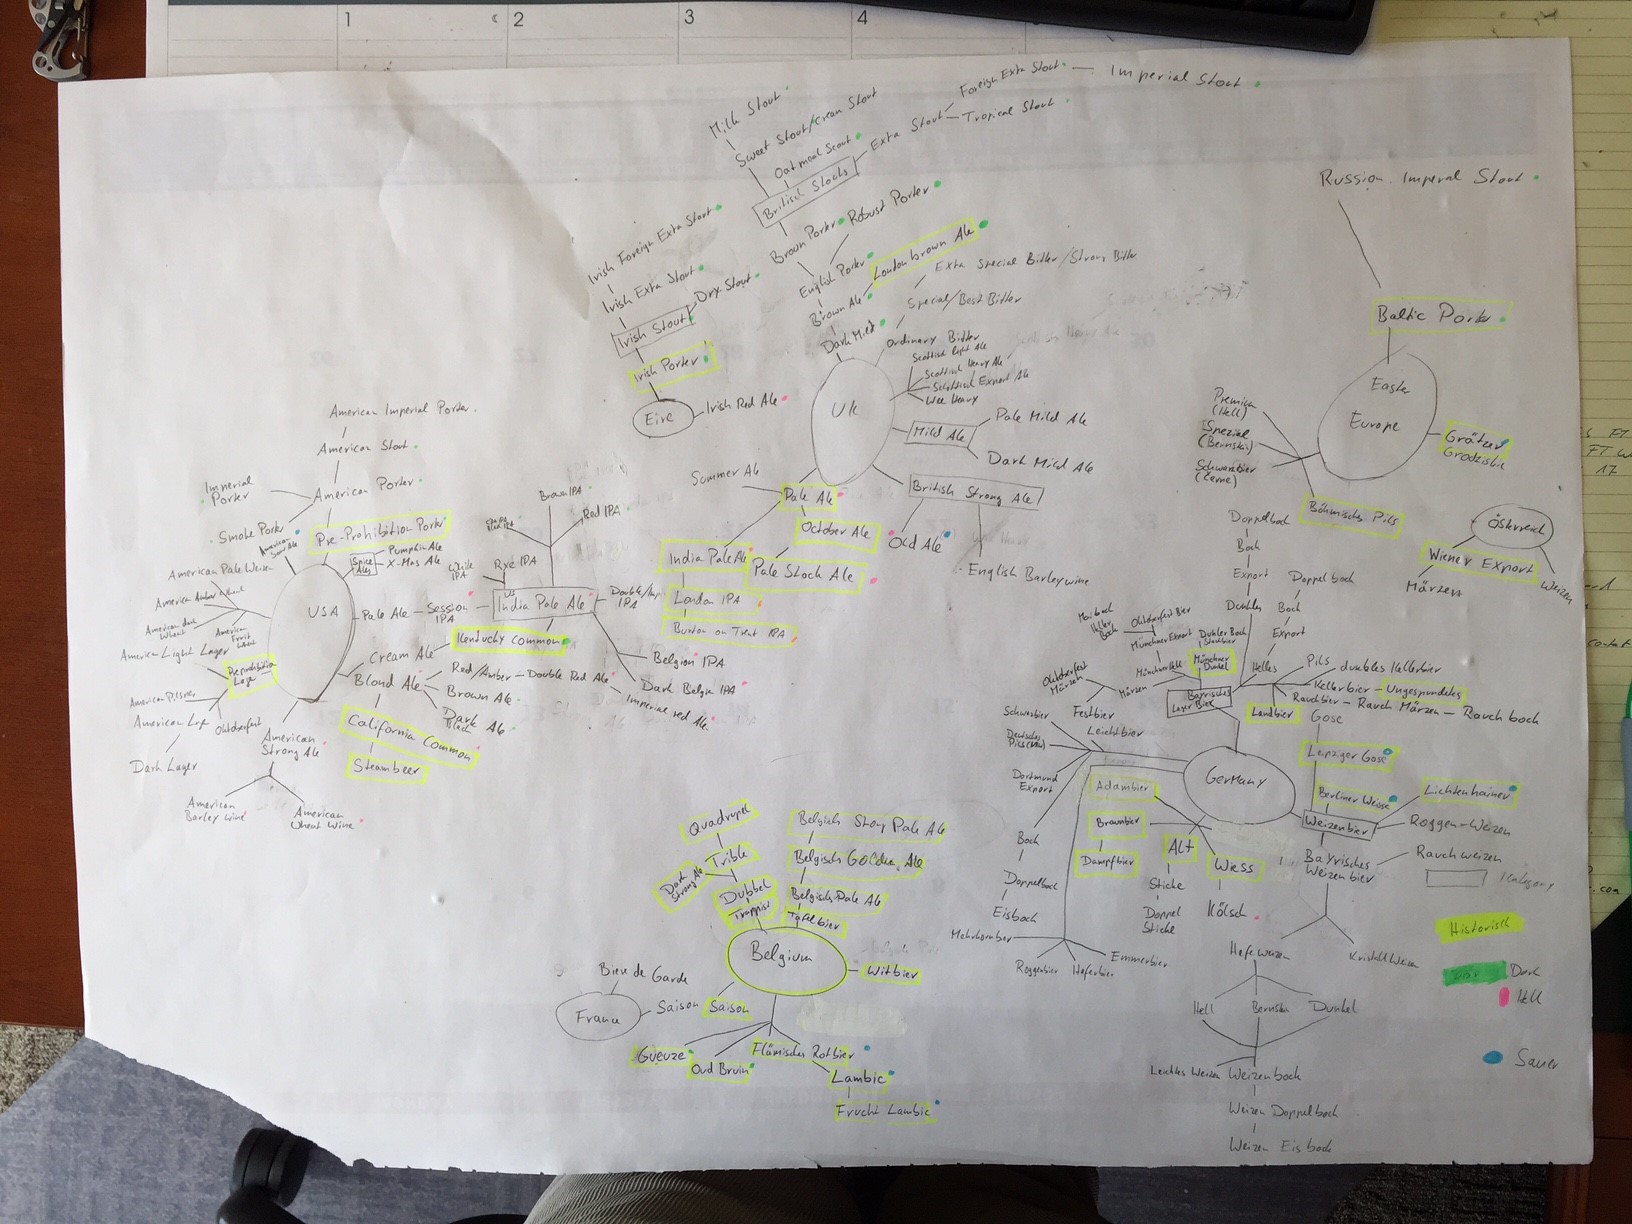 1
2
3
4
Milk Stout
Sweet Stout/Cream Stout
Oatmeal Stout
Extra Stout
Foreign Extra Stout
Imperial Stout
Tropical Stout
British Stouts
Brown Porter
Robust Porter
English Porter
London brown Ale
Brown Ale
Dark Mild
Extra Special Bitter/Strong Bitter
Special/Best Bitter
Ordinary Bitter
Scottish Light Ale
Scottish Heavy Ale
Scottish Export Ale
Wee Heavy
UK
Mild Ale
Pale Mild Ale
Dark Mild Ale
British Strong Ale
Old Ale
English Barleywine
Summer Ale
Pale Ale
October Ale
India Pale Ale
Pale Stock Ale
London IPA
Burton on Trent IPA
Irish Foreign Extra Stout
Irish Extra Stout
Dry Stout
Irish Stout
Irish Porter
Eire
Irish Red Ale
Russian Imperial Stout
Baltic Porter
Easte
Europe
Grätzer
Grodziskie
Premium
(Hell)
Spezial
(Bernstein)
Schwarzbier
(Cerne)
Böhmisches Pils
Östereich
Wiener Export
Märzen
Weizen
American Imperial Porter
American Stout
American Porter
Imperial
Porter
Smoke Porter
Pre-Prohibition Porter
American
Sour Ale
Spice
Ales
Pumpkin Ale
X-Mas Ale
American Pale Weizen
American Amber Wheat
American dark
Wheat
American
Fruit
Wheat
American Light Lager
Preprohibition
Lager
American Pilsner
American Lager
Oktoberfest
Dark Lager
USA
Pale Ale
Session
IPA
White
IPA
Rye IPA
Brown IPA
Red IPA
US
India Pale Ale
Double/Imp.
IPA
Belgian IPA
Dark Belgian IPA
Kentucky Common
Cream Ale
Blond Ale
Red/Amber
Double Red Ale
Imperial red Ale
Brown Ale
Dark Ale
Black
California Common
Steambeer
American
Strong Ale
American
Barley wine
American
Wheat Wine
Quadrupel
Trible
Dark
Strong Ale
Dubbel
Trappist
Belgisch Stong Pale Ale
Belgisch Golden Ale
Belgisch Pale Ale
Tafelbier
Belgium
Witbier
Saison
Gueuze
Oud Bruin
Flämisches Rotbier
Lambic
Frucht Lambic
France
Biere de Garde
Saison
Germany
Bayrisches
Lager Bier
Doppelbock
Bock
Export
Dunkles
Doppelbock
Bock
Export
Helles
Pils
dunkles Kellerbier
Kellerbier
Ungespundetes
Rauchbier
Rauch Märzen
Rauch bock
Landbier
Maibock
Heller
Bock
Oktoberfest Bier
Münchner Export
Dunkler Bock
Starkbier
Münchner Hell
Münchner
Dunkel
Märzen
Oktoberfest
Märzen
Festbier
Leichtbier
Schwarzbier
Deutsches
Dortmund
Export
Bock
Doppelbock
Eisbock
Mehrkornbier
Roggenbier
Haferbier
Emmerbier
Adambier
Braunbier
Dampfbier
Alt
Sticke
Doppel
Sticke
Wiess
Kölsch
Gose
Leipziger Gose
Berliner Weisse
Lichtenhainer
Weizenbier
Roggen-Weizen
Bayrisches
Weizenbier
Rauchweizen
Hefe weizen
Kristall Weizen
Hell
Bernstein
Dunkel
Leichtes Weizen
Weizenbock
Weizen Doppelbock
Weizen Eisbock
Kategory
Historisch
Dark
Hell
Sauer